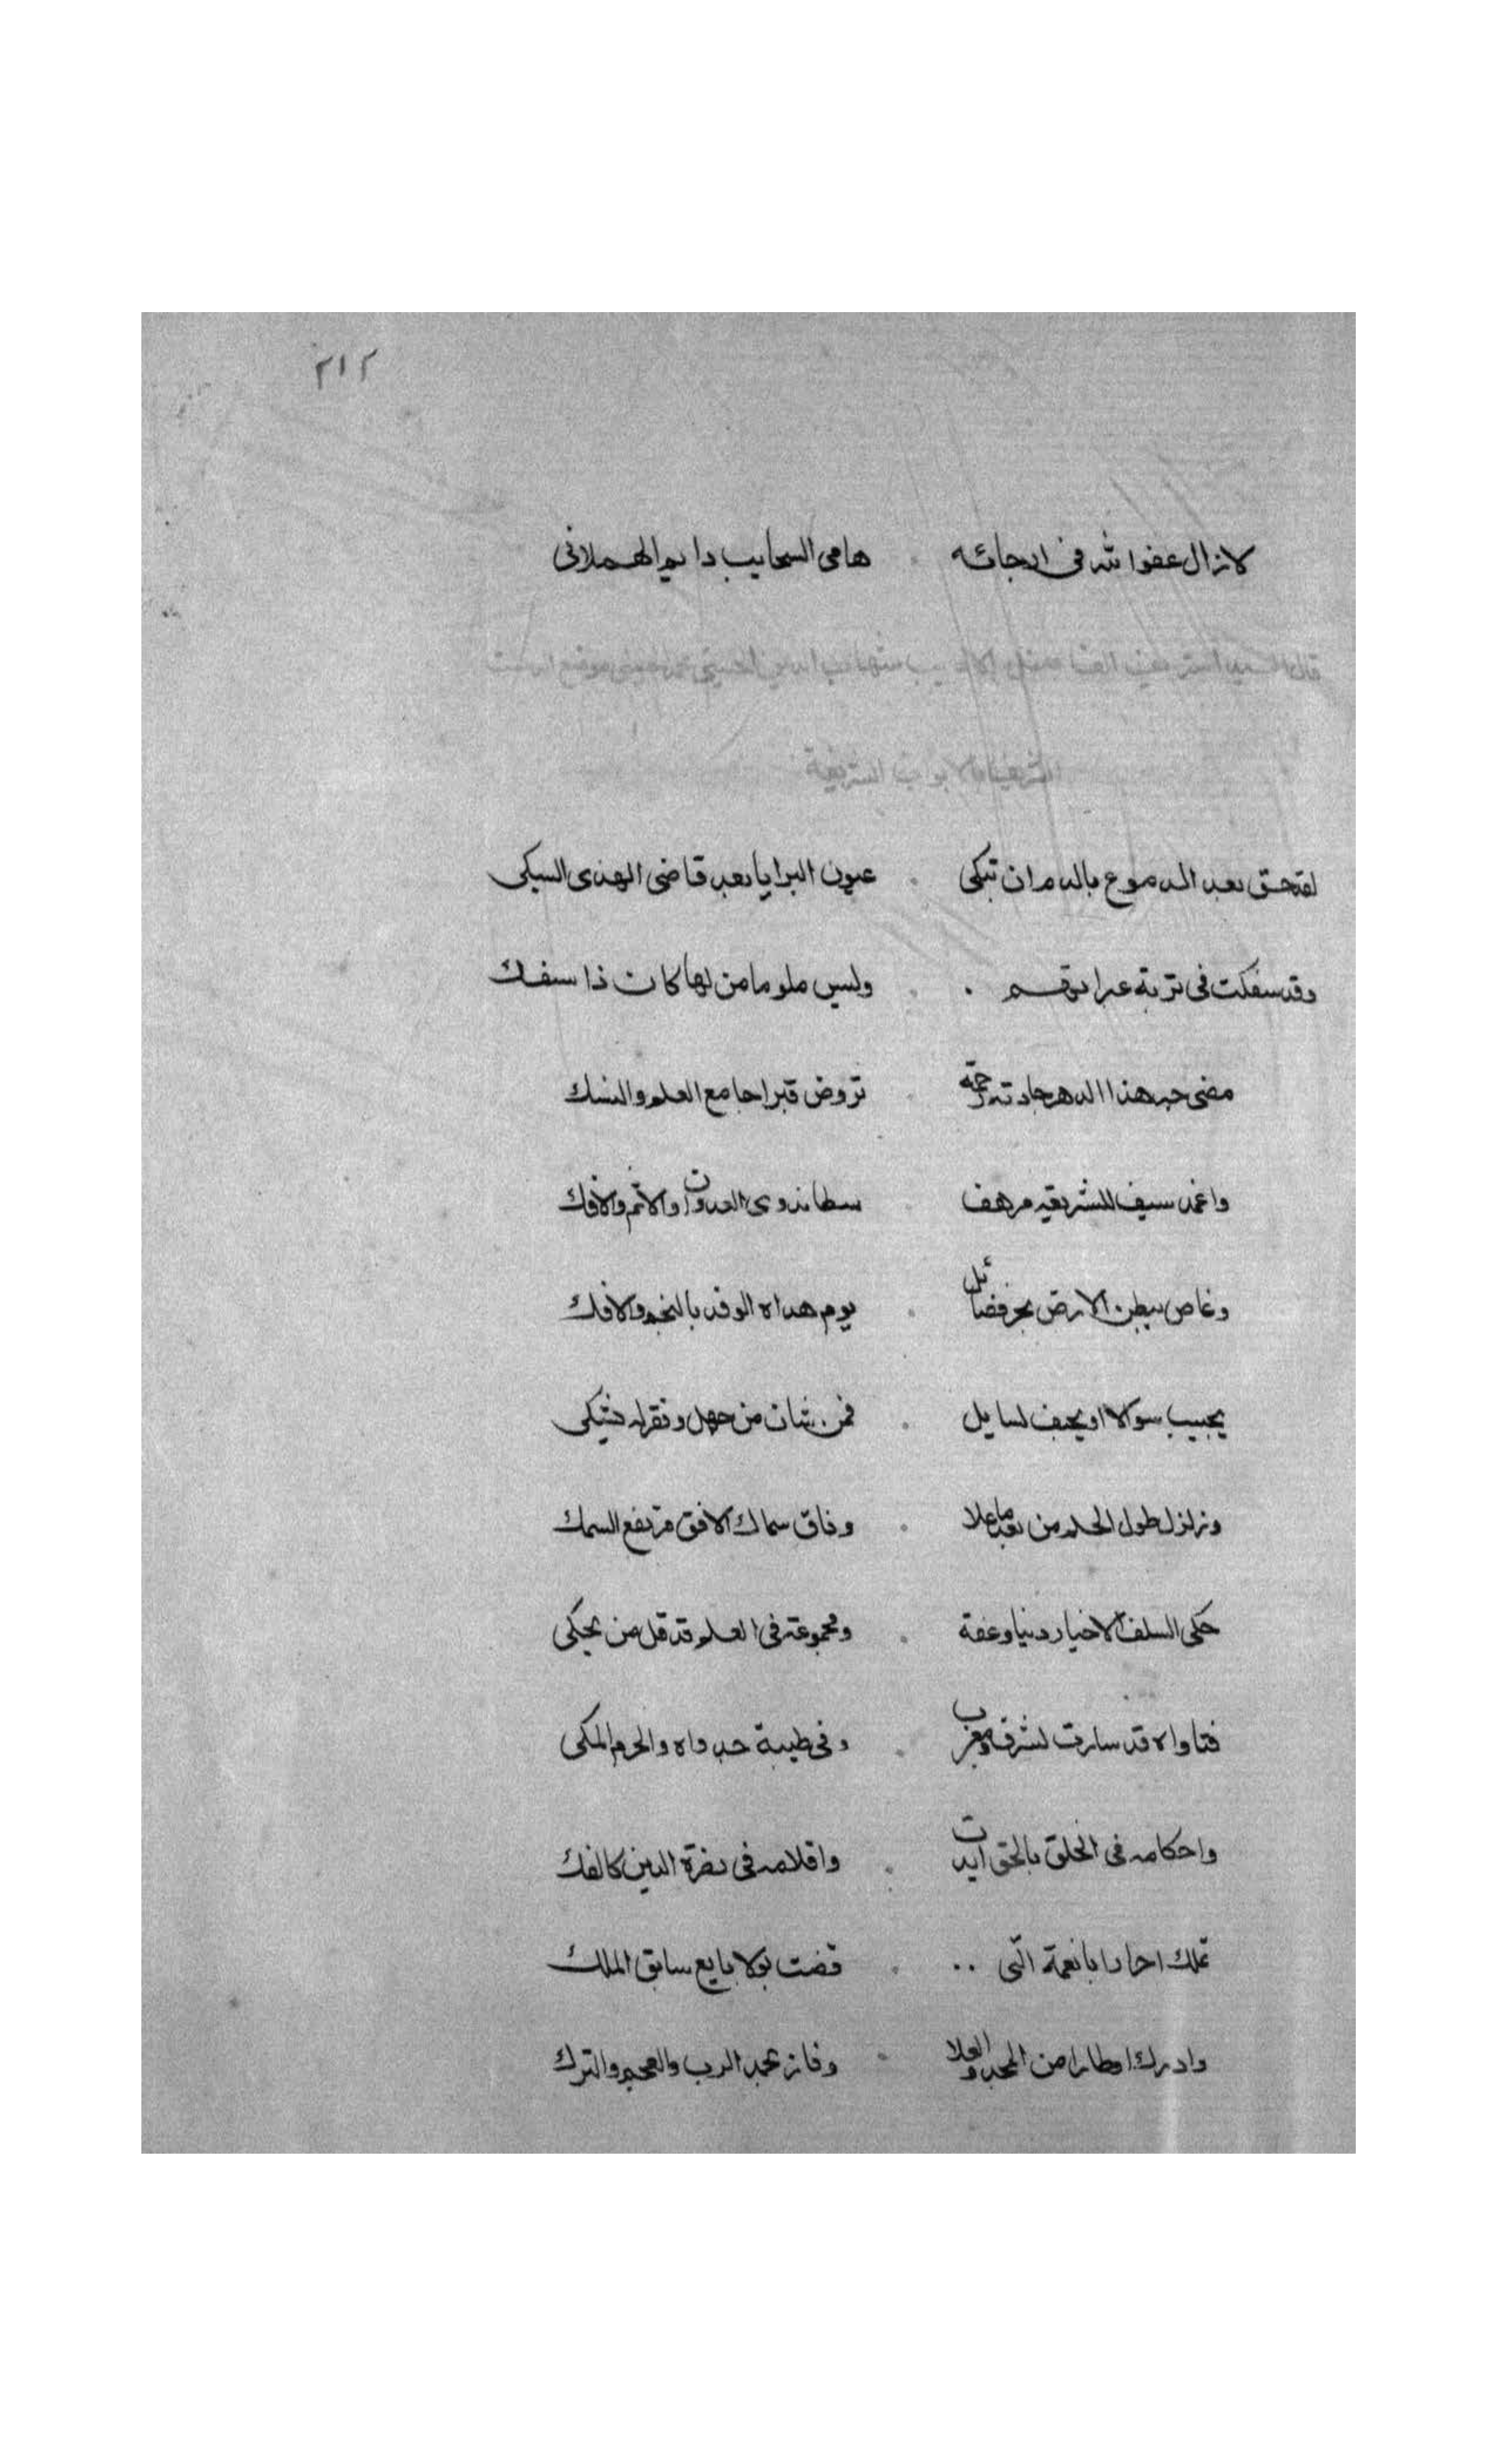 ٢١٢
لازال عفو الله فى ارجائه هامى السحايب دايم الهملانى
قال السيد الشريف الفاضل الاديب شهاب الدين الحسينى موقع الدست
الشريف بالابواب الشريفة
لقد حق بعد الدموع بالدم ان تبكى عيون البرايا بعد قاضى الهدى السبكى
وقد سفكت فى تربة عبراتهم ولبس ملوما من لها كان ذا سفك
مضى حبر هذا الدهر جادته رحمة تروض قبرا جامع العلم والنسك
واغمد سيف للشريعه مرهف سطا بذوى العدوان والاثم والافك
وغاص ببطن الارض بحر فضائل يوم هداه الوفد بالنجم والافك
يجيب سوالا او يجيب لسايل فمن شان من جهل وفقر له تشتكى
وزلزل طول الحلم من بعد ما علا وفاق سماك الافق مرتفع السمك
حكى السلف الاخيار دينا وعفة ومجموعه فى العلم قد قل من يحكى
فتاواه قد سارت لشرق ومغرب وفى طيبة جدواه والحرم المكى
واحكامه فى الخلق بالحق ايدت واقلامه فى نصرة الدين كالفك
تملك احرارا بانعمة التى قضت بولا بايع سابق الملك
وادرك اوطارا من المجد والعلا وفاز بحمد الرب والعجم والترك